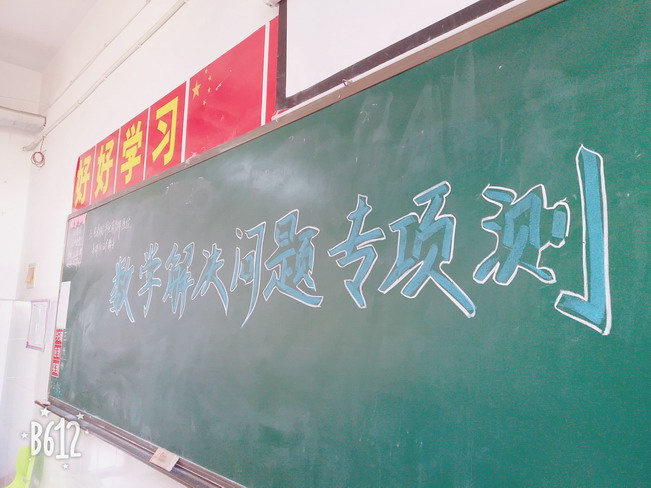 好好学习
数学解决问题专项测
B612